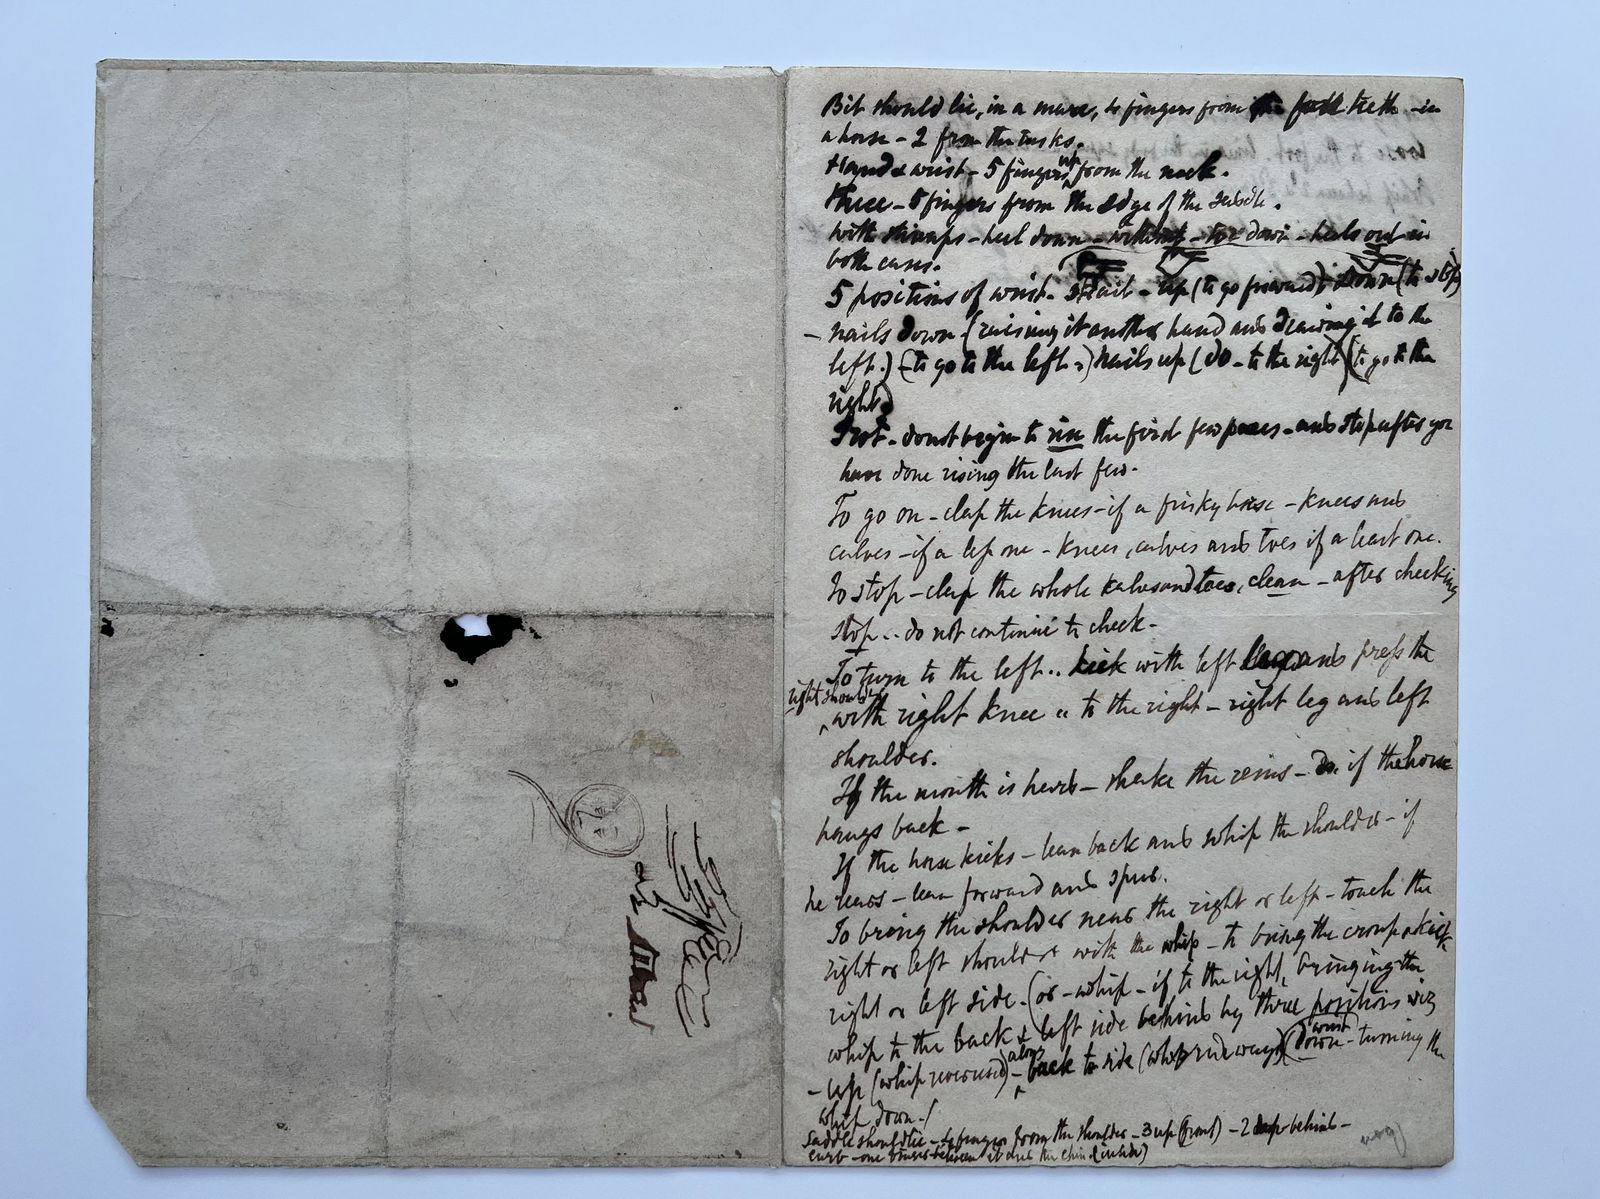 Bit should lie, in a mare, 4 fingers from the teeth - in
a horse - 2 from the tusks.
Hand & wrist - 5 fingers up from the neck.
Knee - 5 fingers from the edge of the saddle.
With stirrups - heel down - without - toe down - heels out in
both cases.
5 positions of wrist - strait - up (to go forward) down (to stop)
- nails down (raising it another hand and drawing it to the
left.) (to go to the left.) nails up (do - to the right) (to go to the
right)
Trot - do not begin to rise the first few paces - and stop after you
have done rising the last few.
To go on - clap the knees - if a frisky horse - knees and
calves - if a less one - knees, calves and toes if a least one.
To stop - clap the whole calves and toes, clean - after checking
stop .. do not continue to check -
To turn to the left .. kick with left leg and press the
right shoulder
with right knee .. to the right - right leg and left
shoulder.
If the mouth is hard - shake the reins - Do. if the horse
hangs back -
If the horse kicks - lean back and whip the shoulder - if
he rears - lean forward and spur.
To bring the shoulder near the right or left - touch the
right or left shoulder with the whip - to bring the croup a kick
right or left side. (or - whip - if to the right, bringing the
whip to the back & left side behind by three positions viz
- up (whip reversed) - along back to side (whip sideways) (wrist down - turning the
whip down.)
Saddle should lie - 4 fingers from the shoulder - 3 up (front) - 2 up behind -
curb - one finger between it and the chin (inside)